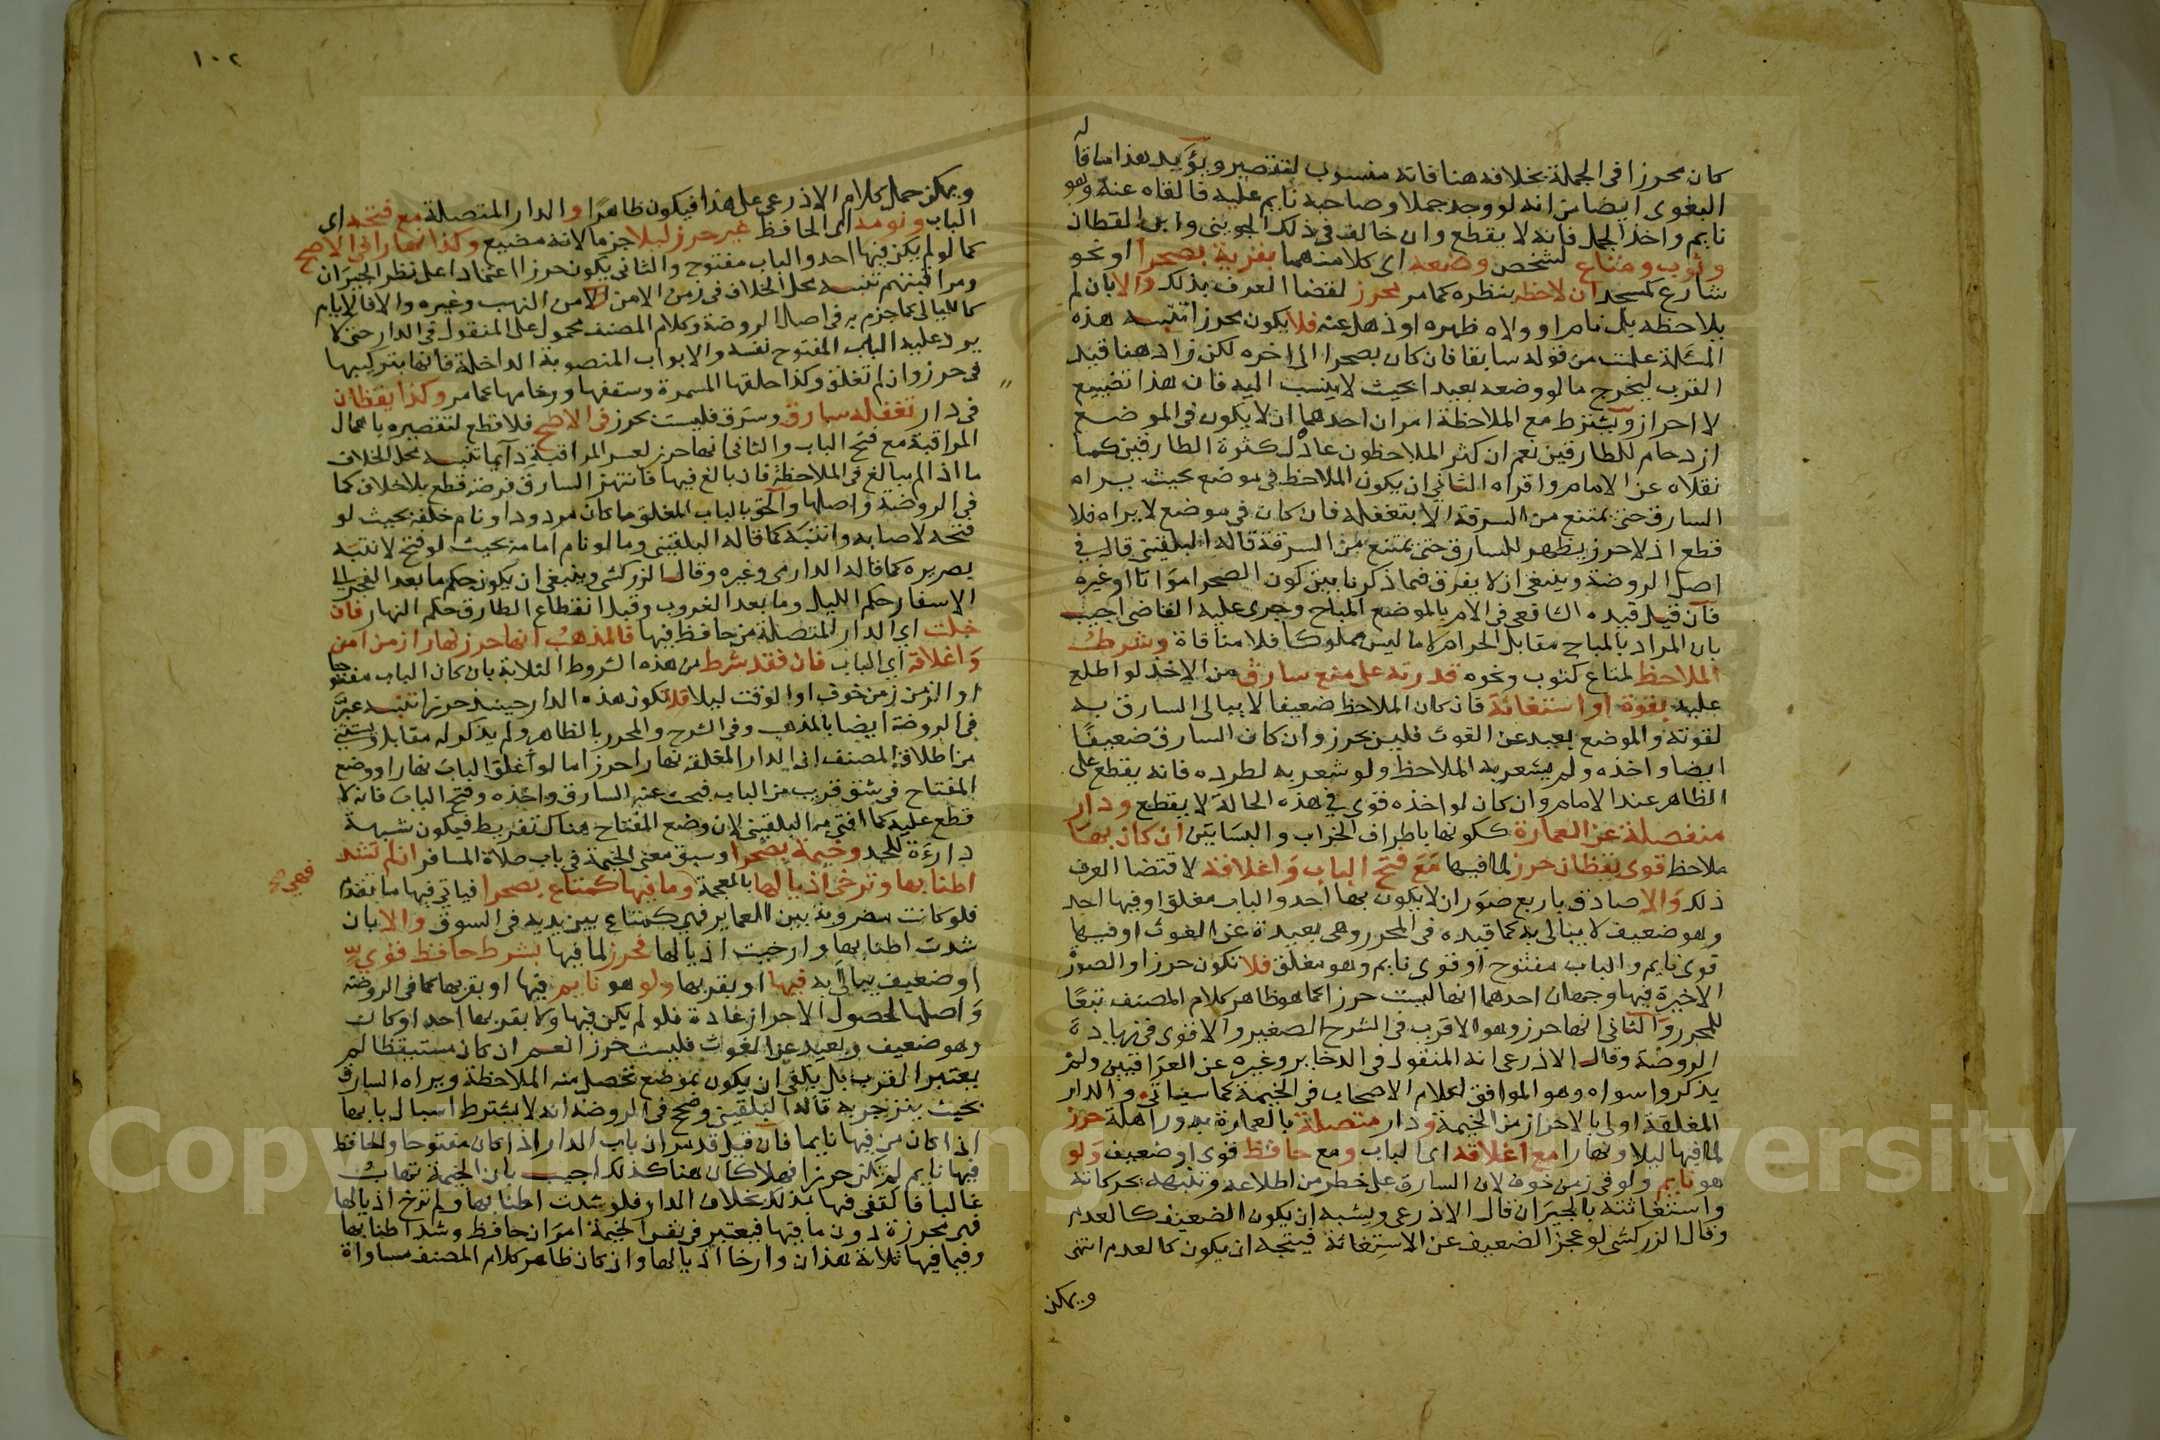 كان محرزا في الجملة بخلافه هنا فانه منسوب لتقصير ويؤيد هذا ما قاله
البغوي ايضا من انه لو وجد جملا وصاحبه نايم عليه فالقاه عنه وهو
نايم واخذ الجمل فانه لا يقطع وان خالف في ذلك الجويني وابن القطان
وثوب ومتاع لشخص وضعه اي كلا منهما بقربه بصحرا او نحو
شارع كمسجد ان لاحظه بنظره كما مر محرز لقضا العرف بذلك والا بان لم
يلاحظه بل نام او ولاه ظهره او ذهل عنه فلا يكون محرزا تنبيه هذه
المسئلة علمت من قوله سابقا فان كان بصحرا الى اخره لكن زاد هنا قيد
القرب ليخرج ما لو وضعه بعيدا بحيث لا ينسب اليه فان هذا تضييع
لا احراز ويشترط مع الملاحظة امران احدهما ان لا يكون في الموضع
ازدحام للطارقين نعم ان كثر الملاحظون عادل كثرة الطارقين كما
نقلاه عن الامام واقراه الثاني ان يكون الملاحظ في موضع بحيث يراه
السارق حتى يمتنع من السرقة الا بتغفله فان كان في موضع لا يراه فلا
قطع اذ لا حرز يظهر للسارق حتى يمتنع من السرقة قاله البلقيني قال في
اصل الروضة وينبغي ان لا يفرق فيما ذكرنا بين كون الصحرا مواتا او غيره
فان قيل قيده الشافعي في الام بالموضع المباح وجرى عليه القاضي اجيب
بان المراد بالمباح مقابل الحرام لا ما ليس مملوكا فلا منافاة وشرط
الملاحظ لمتاع كثوب ونحوه قدرته على منع سارق من الاخذ لو اطلع
عليه بقوة او استغاثة فان كان الملاحظ ضعيفا لا يبالي السارق به
لقوته والموضع بعيد عن الغوث فليس بحرز وان كان السارق ضعيفا
ايضا واخذه ولم يشعر به الملاحظ ولو شعر به لطرده فانه يقطع على
الظاهر عند الامام وان كان لو اخذه قوي في هذه الحالة لا يقطع ودار
منفصلة عن العمارة ككونها باطراف الخراب والبساتين ان كان بها
ملاحظ قوي يقظان حرز لما فيها مع فتح الباب واغلاقه لاقتضا العرف
ذلك والا صادق باربع صور ان لا يكون بها احد والباب مغلق او فيها احد
وهو ضعيف لا يبالى به كما قيده في المحرر وهي بعيدة عن الغوث او فيها
قوي نايم والباب مفتوح او قوي نايم وهو مغلق فلا تكون حرزا والصورة
الاخيرة فيها وجهان احدهما انها ليست حرزا كما هو ظاهر كلام المصنف تبعا
للمحرر والثاني انها حرز وهو الاقرب في الشرح الصغير والاقوى في زيادة
الروضة وقال الاذرعي انه المنقول في الدخاير وغيره عن العراقيين ولم
يذكروا سواه وهو الموافق لكلام الاصحاب في الخيمة كما سياتي والدار
المغلقة اولى بالاحراز من الخيمة ودار متصلة بالعمارة بدور اهلة حرز
لما فيها ليلا ونهارا مع اغلاقه اي الباب ومع حافظ قوي او ضعيف ولو
هو نايم ولو في زمن خوف لان السارق على خطر من اطلاعه وتنبهه بحركاته
واستغاثته بالجيران قال الاذرعي ويشبه ان يكون الضعيف كالعدم
وقال الزركشي لو عجز الضعيف عن الاستغاثة فيتجه ان يكون كالعدم انتهى
ويمكن
١٠٢
ويمكن حمل كلام الاذرعي على هذا فيكون ظاهرا والدار المتصلة مع فتحه اي
الباب ونومه اي الحافظ غير حرز ليلا جزما لانه مضيع وكذا نهارا في الاصح
كما لو لم يكن فيها احد والباب مفتوح والثاني يكون حرزا اعتمادا على نظر الجيران
ومراقبتهم تنبيه محل الخلاف في زمن الامن من النهب وغيره والا فالايام
كالليالي كما جزم به في اصل الروضة وكلام المصنف محمول على المنقول في الدار حتى لا
يرد عليه الباب المفتوح نفسه والابواب المنصوبة الداخلة فانها بتركيبها
في حرز وان لم تغلق وكذا حلقها المسمرة وسقفها ورخامها كما مر وكذا يقظان
في دار تغفله سارق وسرق فليست بحرز في الاصح فلا قطع لتقصيره باهمال
المراقبة مع فتح الباب والثاني انها حرز لعسر المراقبة دايما تنبيه محل الخلاف
ما اذا لم يبالغ في الملاحظة فان بالغ فيها فانتهز السارق فرصة قطع بلا خلاف كما
في الروضة واصلها والحق بالباب المغلق ما كان مردودا ونام خلفه بحيث لو
فتحه لاصابه وانتبه كما قاله البلقيني وما لو نام امامه بحيث لو فتح لانتبه
بصريره كما قاله الدارمي وغيره وقال الزركشي وينبغي ان يكون حكم ما بعد الفجر الى
الاسفار حكم الليل وما بعد الغروب وقبل انقطاع الطارق حكم النهار فان
خلت اي الدار المتصلة من حافظ فيها فالمذهب انها حرز نهارا زمن امن
واغلاقه اي الباب فان فقد شرط من هذه الشروط الثلاثة بان كان الباب مفتوحا
او الزمن زمن خوف او الوقت ليلا فلا تكون هذه الدار حينيذ حرزا تنبيه عبر
في الروضة ايضا بالمذهب وفي الشرح والمحرر بالظاهر ولم يذكر له مقابل ويستثنى
من اطلاق المصنف ان الدار المغلقة نهارا حرز اما لو اغلق الباب نهارا ووضع
المفتاح في شق قريب من الباب فبحث عنه السارق واخذه وفتح الباب فانه لا
قطع عليه كما افتى به البلقيني لان وضع المفتاح هناك تفريط فيكون شبهة
دارءة للحد وخيمة بصحرا وسبق معنى الخيمة في باب صلاة المسافر ان لم تشد
اطنابها وترخى اذيالها بالمعجمة وما فيها كمتاع بصحرا فياتي فيها ما تقدم
فهي
فلو كانت مضروبة بين العماير فهي كمتاع بين يديه في السوق والا بان
شدت اطنابها وارخيت اذيالها فحرز لما فيها بشرط حافظ قوي
او ضعيف يبالى به فيها او بقربها ولو هو نايم فيها او بقربها كما في الروضة
واصلها لحصول الاحراز عادة فلو لم يكن فيها ولا بقربها احد او كان
وهو ضعيف وبعيد عن الغوث فليست حرزا نعم ان كان مستيقظا لم
يعتبر القرب بل يكفي ان يكون بموضع تحصل منه الملاحظة ويراه السارق
بحيث ينزجر به قاله البلقيني وصح في الروضة انه لا يشترط اسبال بابها
اذا كان من فيها نايما فان قيل قد مر ان باب الدار اذا كان مفتوحا والحافظ
فيها نايم لم تكن حرزا فهلا كان هنا كذلك اجيب بان الخيمة تهاب
غالبا فاكتفي فيها بذلك بخلاف الدار فلو شدت اطنابها ولم ترخ اذيالها
فهي محرزة دون ما فيها فيعتبر في نفس الخيمة امران حافظ وشد اطنابها
وفيما فيها ثلاثة هذان وارخا اذيالها وان كان ظاهر كلام المصنف مساواة